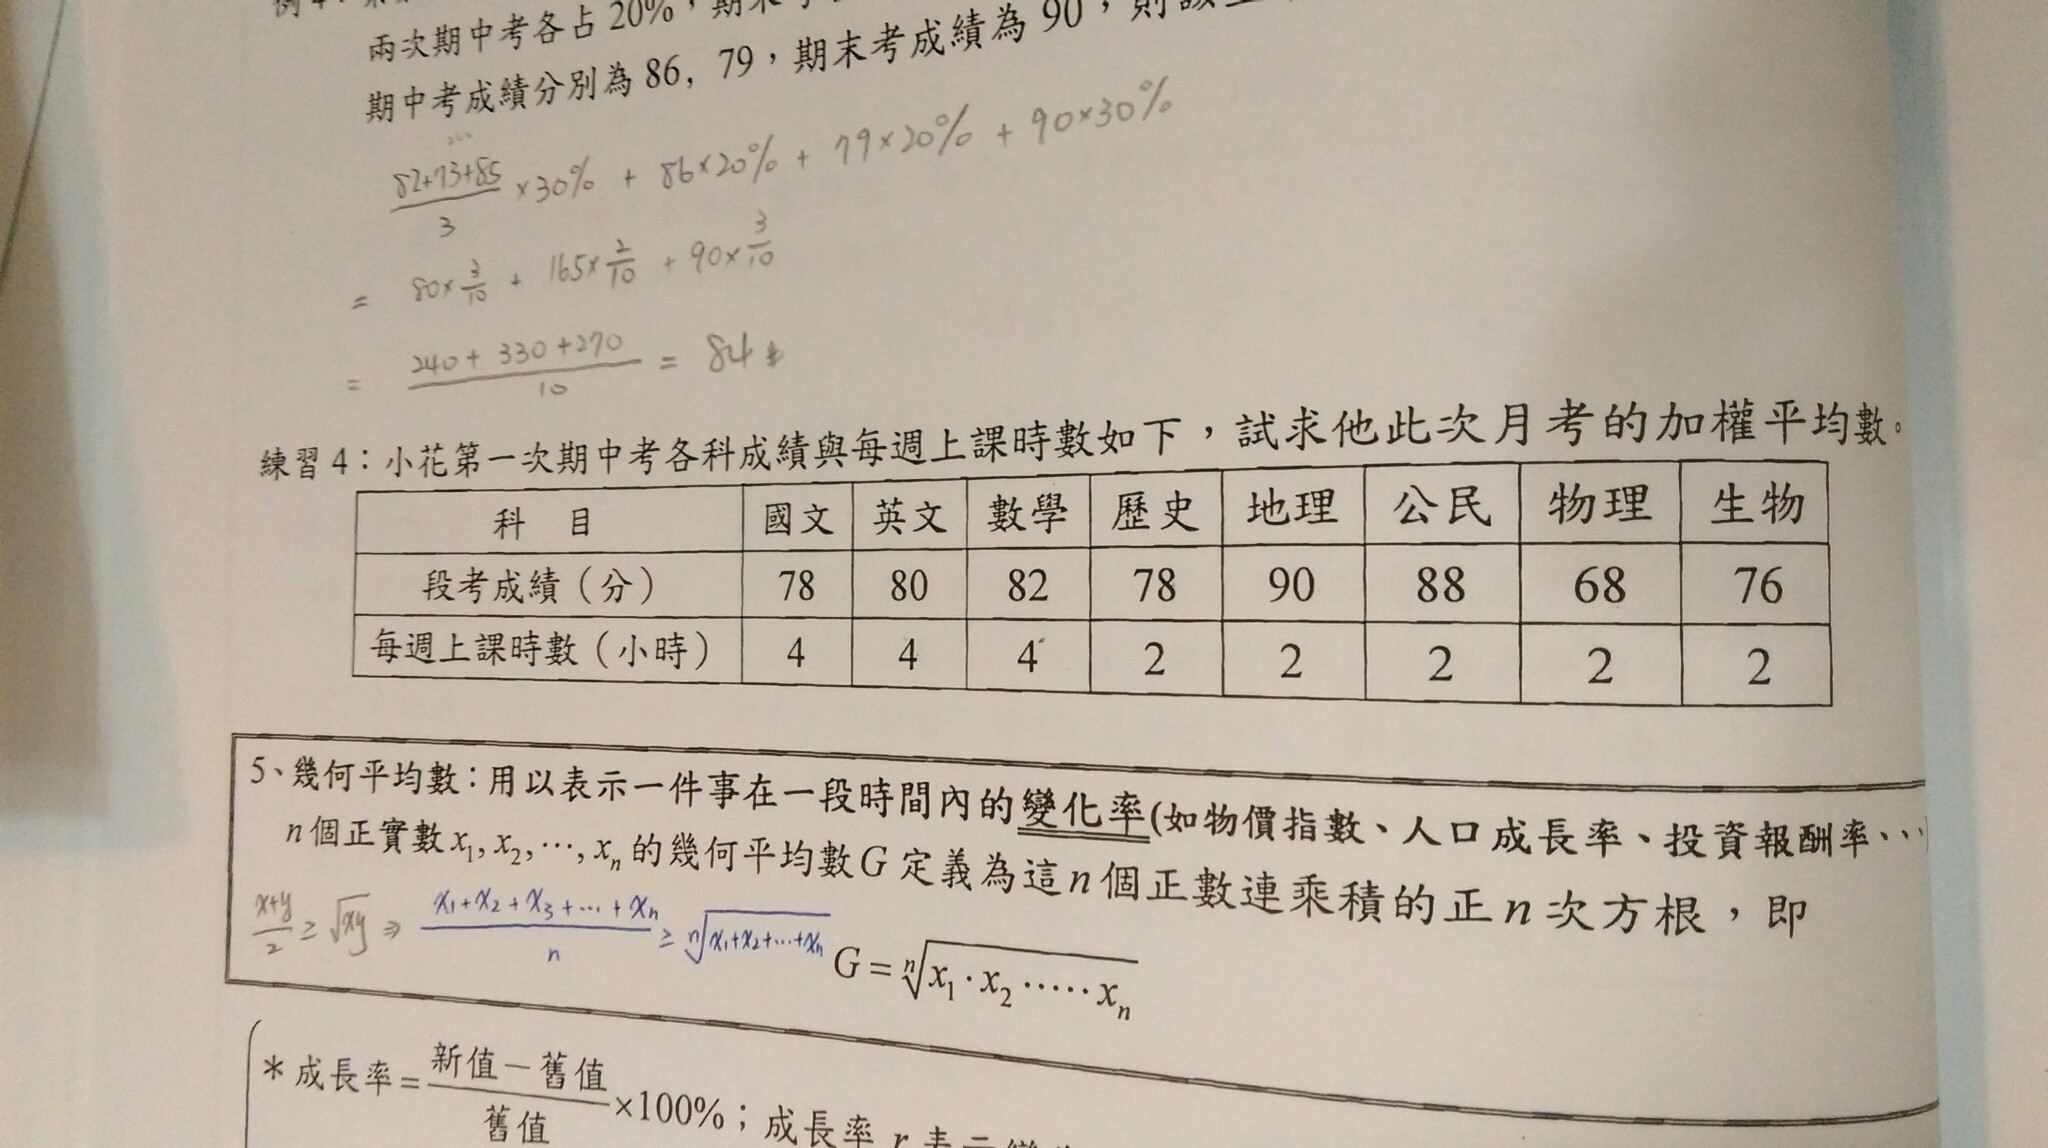 兩次期中考各占20%，期末
期中考成績分別為86, 79，期末考成績為90，則該
82+73+85/3 ×30% + 86×20% + 79×20% + 90×30%
= 80×3/10 + 165×2/10 + 90×3/10
= 240+330+270/10 = 84
練習4：小花第一次期中考各科成績與每週上課時數如下，試求他此次月考的加權平均數。
科 目 國文 英文 數學 歷史 地理 公民 物理 生物
段考成績（分） 78 80 82 78 90 88 68 76
每週上課時數（小時） 4 4 4 2 2 2 2 2
5、幾何平均數：用以表示一件事在一段時間內的變化率(如物價指數、人口成長率、投資報酬率、…
n個正實數x₁, x₂, …, xₙ的幾何平均數G定義為這n個正數連乘積的正n次方根，即
x+y/2 ≥ √xy ⇒ x₁+x₂+x₃+…+xₙ/n ≥ ⁿ√x₁+x₂+…+xₙ
G = ⁿ√x₁·x₂·····xₙ
*成長率=新值－舊值/舊值×100%；成長率 r 表示